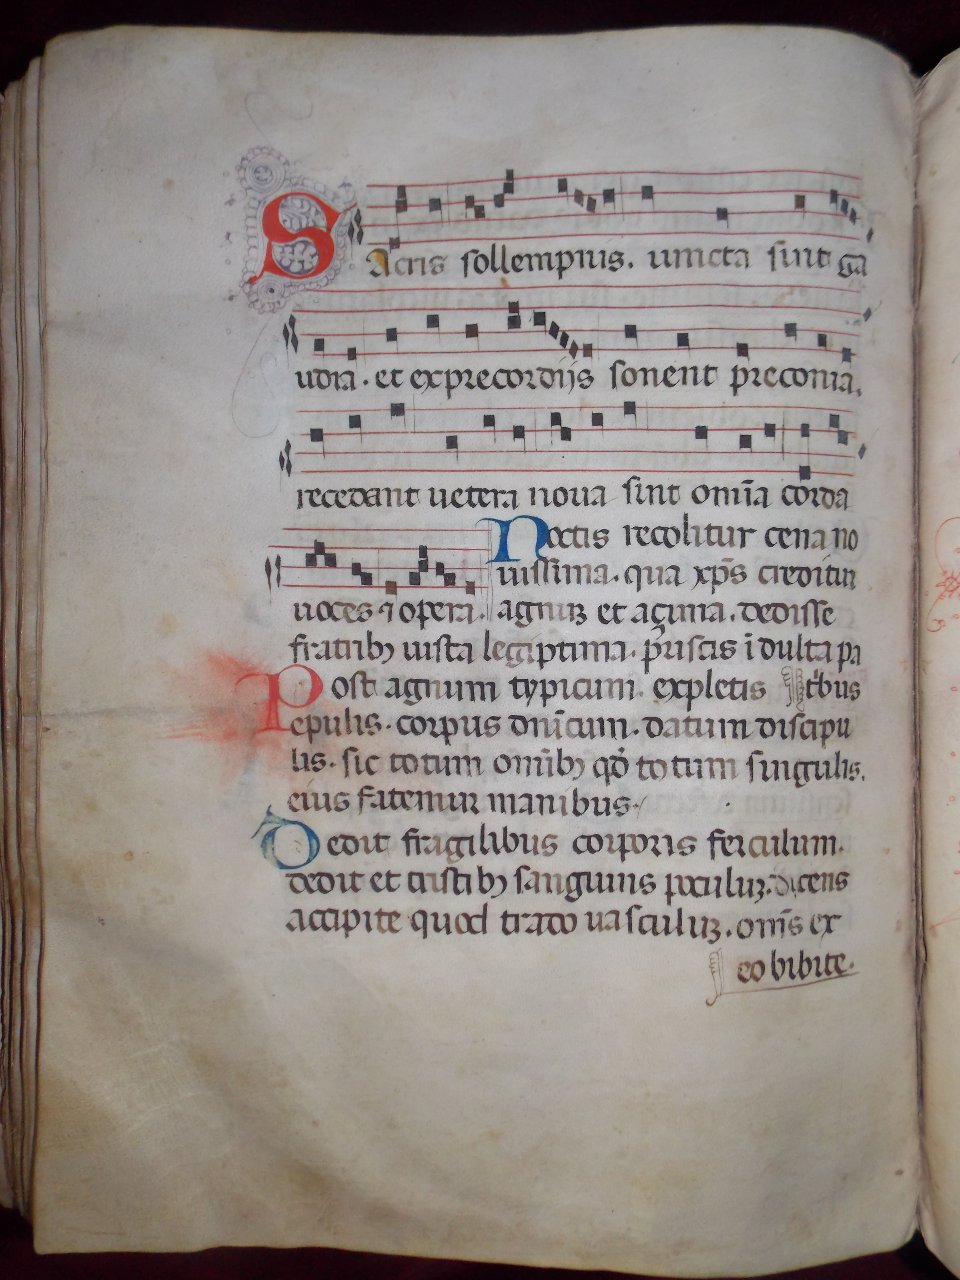 Sacris sollempniis. iuncta sint ga
udia. et ex precordiis sonent preconia.
recedant uetera noua sint om̄ia corda
uoces ⁊ opera.
Noctis recolitur cena no
uissima. qua xp̄s creditur
agnuʒ et açima. dedisse
fratribꝫ iusta legiptima. priscis īdulta pa
Post agnum typicum. expletis
tͥbus
epulis. corpus dn̄icum. datum discipu
lis. sic totum omībꝫ qđ totum singulis.
eius fatemur manibus.
Dedit fragilibus corporis ferculum.
dedit et tristibꝫ sanguinis poculuʒ. dicens
accipite quod trado uasculuʒ. om̄s ex
eo bibite.